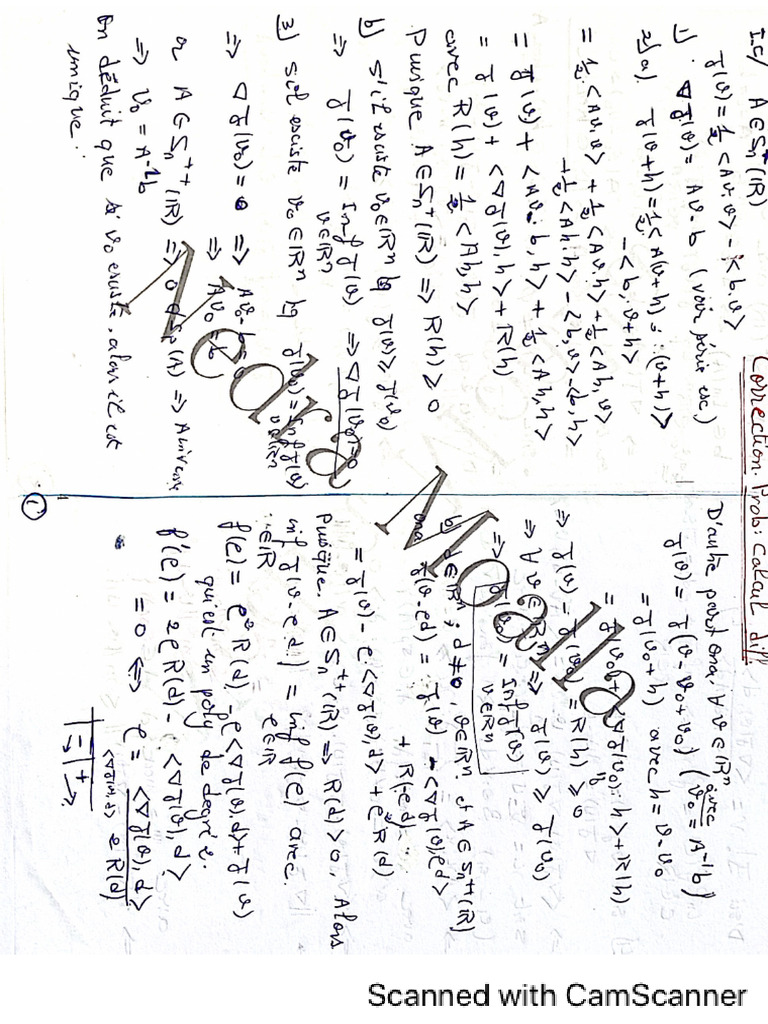 Correction Prob: Calcul diff
I.c/ A ∈ S_n^+(IR)
J(v) = 1/2 <Av,v> - <b,v>
1) · ∇J(v) = Av - b (voir série exc.)
2/a) J(v+h) = 1/2 <A(v+h), (v+h)>
- <b, v+h>
= 1/2 <Av,v> + 1/2 <Av,h> + 1/2 <Ah,v>
+ 1/2 <Ah,h> - <b,v> - <b,h>
= J(v) + <Av-b,h> + 1/2 <Ah,h>
= J(v) + <∇J(v),h> + R(h)
avec R(h) = 1/2 <Ah,h>
Puisque A ∈ S_n^+(IR) => R(h) ≥ 0
b) S'il existe v_0 ∈ IR^n tq J(v) ≥ J(v_0)
=> J(v_0) = Inf J(v) => ∇J(v_0) = 0
v∈IR^n
3) s'il existe v_0 ∈ IR^n tq J(v_0) = Inf J(v)
v∈IR^n
=> ∇J(v_0) = 0 => Av_0 - b = 0
=> Av_0 = b
or A ∈ S_n^{++}(IR) => 0 ∉ Sp(A) => A inverse
=> v_0 = A^{-1}b
On déduit que si v_0 existe, alors il est
unique.
D'autre part ona: ∀ v ∈ IR^n
J(v) = J(v - v_0 + v_0) (avec v_0 = A^{-1}b)
= J(v_0 + h) avec h = v - v_0
= J(v_0) + <∇J(v_0), h> + R(h)
=> J(v) - J(v_0) = R(h) ≥ 0
=> ∀ v ∈ IR^n J(v) ≥ J(v_0)
=> J(v_0) = Inf J(v)
v∈IR^n
b) d ∈ IR^n; d ≠ 0, v ∈ IR^n. et A ∈ S_n^{++}(IR)
ona J(v - ρd) = J(v) - <∇J(v), ρd>
+ R(-ρd)
= J(v) - ρ <∇J(v), d> + ρ² R(d)
Puisque A ∈ S_n^{++}(IR) => R(d) > 0. Alors
inf J(v - ρd) = inf f(ρ) avec
ρ∈IR ρ∈IR
f(ρ) = ρ² R(d) - ρ <∇J(v), d> + J(v)
qui est un poly de degré 2.
f'(ρ) = 2ρ R(d) - <∇J(v), d>
= 0 <=> ρ = <∇J(v), d>
2 R(d)
①
Nedra Moalla
Scanned with CamScanner